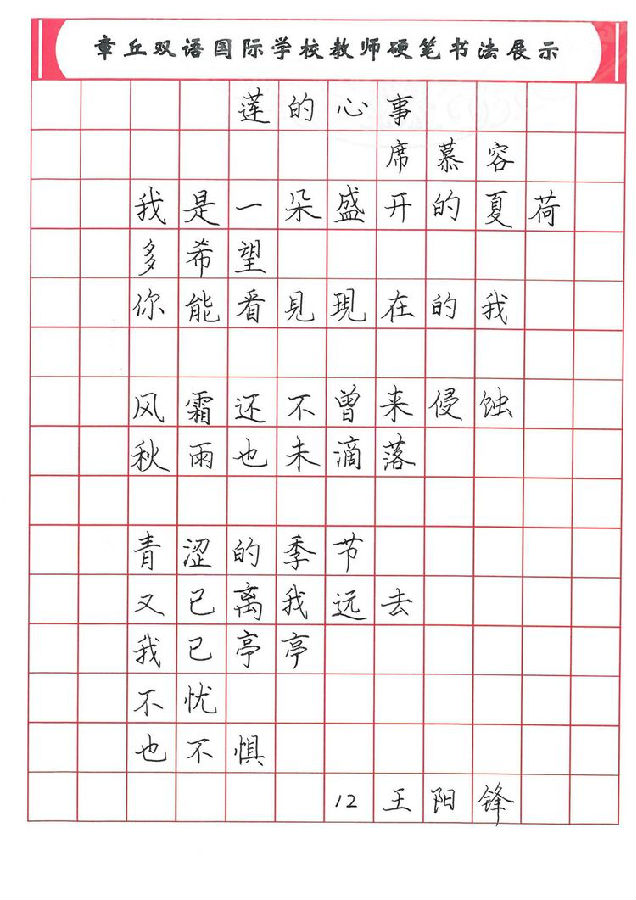 章丘双语国际学校教师硬笔书法展示
莲的心事
席慕容
我是一朵盛开的夏荷
多希望
你能看見現在的我
风霜还不曾来侵蚀
秋雨也未滴落
青涩的季节
又已离我远去
我已亭亭
不忧
也不惧
12王阳锋